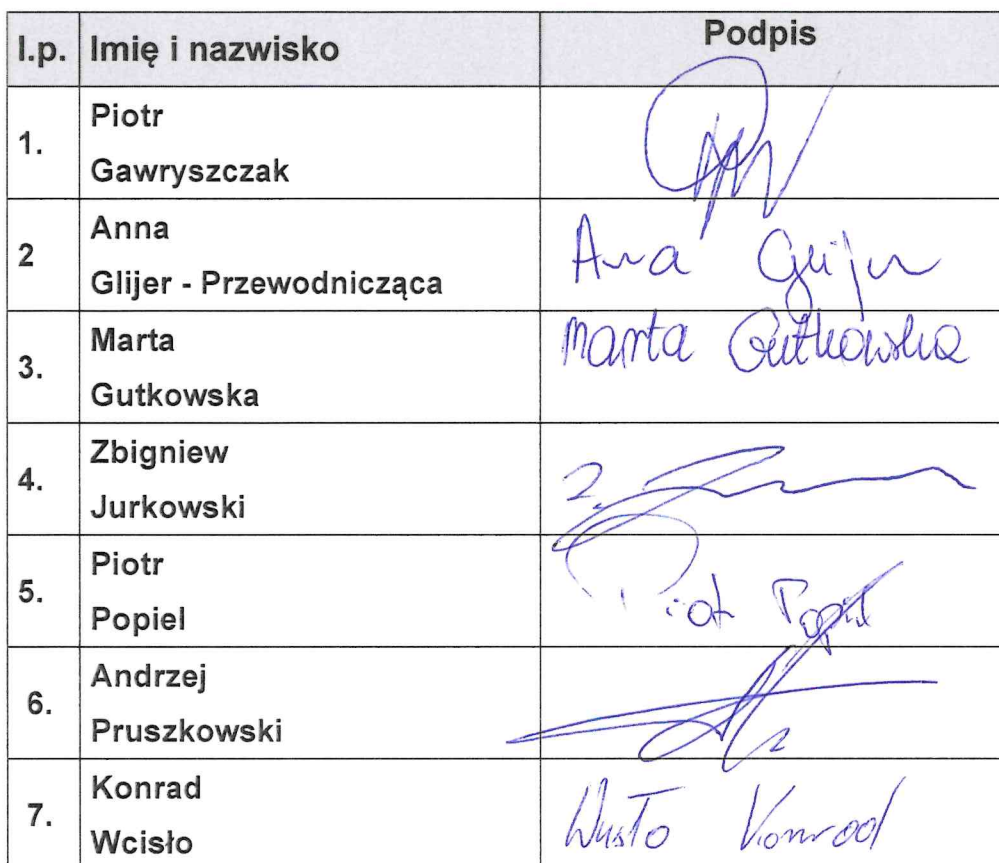 l.p. Imię i nazwisko Podpis
1. Piotr
Gawryszczak
2 Anna
Glijer - Przewodnicząca
Anna Glijer
3. Marta
Gutkowska
Marta Gutkowska
4. Zbigniew
Jurkowski
5. Piotr
Popiel
Piotr Popiel
6. Andrzej
Pruszkowski
7. Konrad
Wcisło
Wcisło Konrad